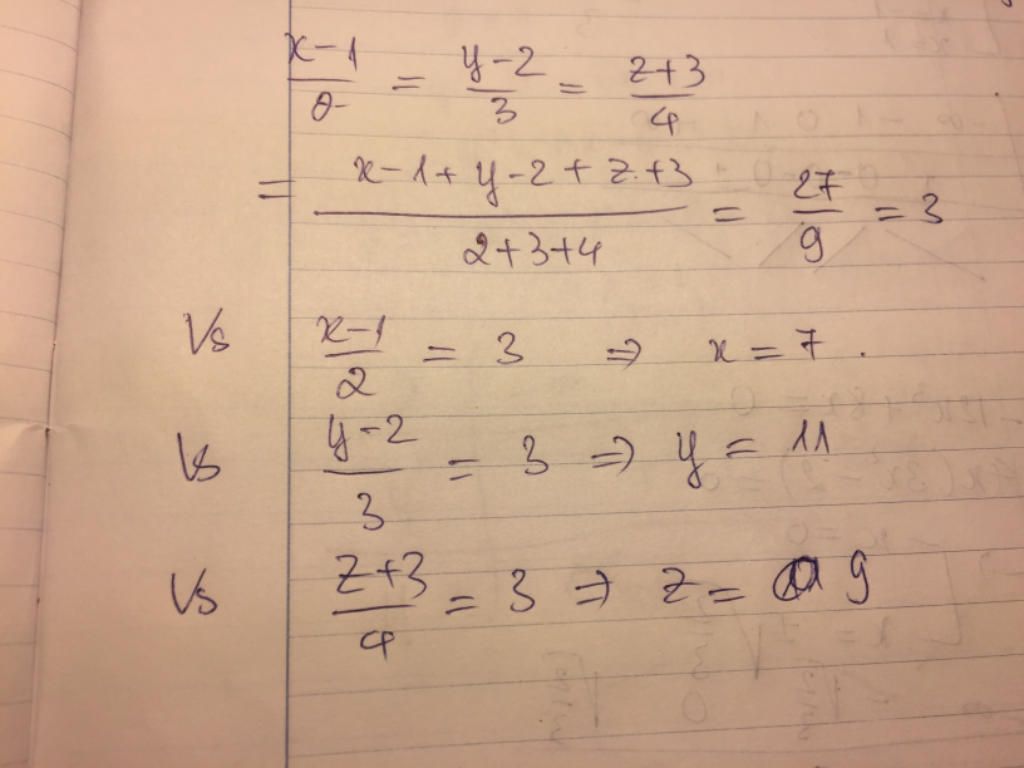 x-1/2 = y-2/3 = z+3/4
= x-1+y-2+z+3/2+3+4 = 27/9 = 3
Vs x-1/2 = 3 ⇒ x = 7.
Vs y-2/3 = 3 ⇒ y = 11
Vs z+3/4 = 3 ⇒ z = 9